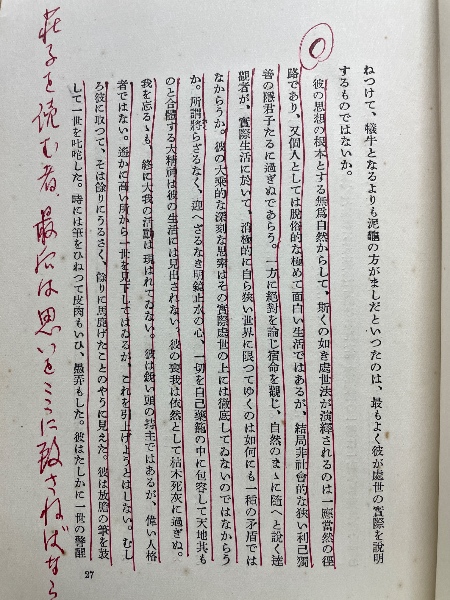 ねつけて、犠牛となるよりも泥龜の方がましだといつたのは、最もよく彼が處世の實際を說明
するものではないか。
彼の思想の根本とする無爲自然からして、斯くの如き處世法が演繹されるのは一應當然の徑
路であり、又個人としては脫俗的な極めて面白い生活ではあるが、結局非社會的な狹い利己獨
善の隱君子たるに過ぎぬであらう。一方に絕對を論じ宿命を觀じ、自然のまゝに隨へと說く達
觀者が、實際生活に於いて、消極的に自ら狹い世界に限つてゆくのは如何にも一種の矛盾では
なからうか。彼の大乘的な深刻な思索はその實際處世の上には徹底してゐないのではなからう
か。所謂將らざるなく、迎へざるなき明鏡止水の心、一切を自己藥籠の中に包容して天地と共も
のと合體する大精神は彼の生活には見出されない。彼の喪我は依然として枯木死灰に過ぎぬ。
我を忘るゝも、終に大我の活動は現はれてゐない。彼は銳い頭の持主ではあるが、偉い人格
者ではない。遙かに高い所から一世を見下してはゐるが、これを引上げようとはしない。むし
ろ彼に取つて、そは餘りにうるさく、餘りに馬鹿げたことのやうに見えた。彼は放膽の筆を鼓
して一世を叱咤した。時には筆をひねつて皮肉もいひ、愚弄もした。彼はたしかに一世の警醒
27
莊子を読む者、最后は思いをここに致さねばなら